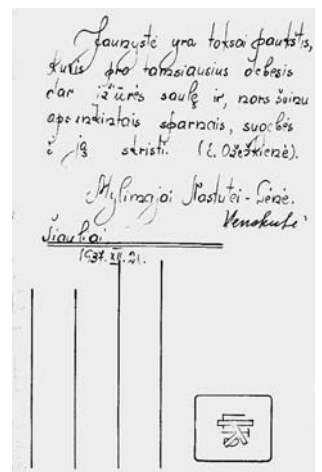 Jaunystė yra toksai paukštis,
kuris pro tamsiausius debesis
dar įžiūrės saulę ir, nors švinu
apsunkintais sparnais, sugebės
į ją skristi. (E. Ožeškienė).
Mylimajai Nastutei - Genė.
Venskutė
Šiauliai
1937. XII. 21.